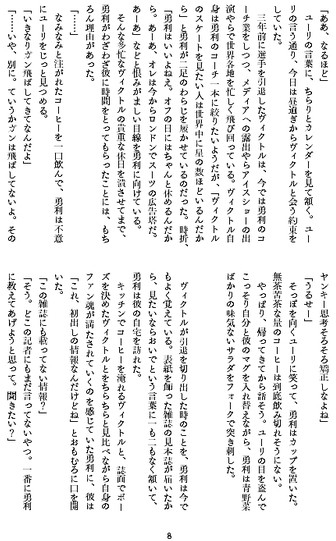 「ああ、なるほど」
ユーリの言葉に、ちらりとカレンダーを見て頷く。ユー
リの言う通り、今日は昼過ぎからヴィクトルと会う約束を
していた。
三年前に選手を引退したヴィクトルは、今では勇利のコ
ーチ業をしつつ、メディアへの露出やらアイスショーの出
演やらで世界各地を忙しく飛び回っている。ヴィクトル自
身は勇利のコーチ一本に絞りたいようだが、「ヴィクトル
のスケートを見たい人は世界中に星の数ほどいるんだか
ら」と勇利が二足のわらじを勧めているのだった。時折、
「勇利はいいよねえ。オフの日にはちゃんと休めるんだか
ら。あーあ、オレは今からロンドンでスーツの広告塔だ。
あーあ」などと恨みがましい目線を勇利に向けている。
そんな多忙なヴィクトルの貴重な休日を潰させてまで、
勇利がわざわざ彼に時間をとってもらったことには、もち
ろん理由があった。
「……」
なみなみと注がれたコーヒーを一口飲んで、勇利は不意
にユーリをじっと見つめる。
「いきなりガン飛ばしてきてなんだよ」
「……いや、別に。ていうかガンは飛ばしてないよ。その
ヤンキー思考そろそろ矯正しなよね」
「うるせー」
そっぽを向くユーリに笑って、勇利はカップを置いた。
無茶苦茶な量のコーヒーは到底飲み切れそうにない。
やっぱり、帰ってきてから話そう。ユーリの目を盗んで
こっそり自分と彼のマグを入れ替えながら、勇利は青野菜
ばかりの味気ないサラダをフォークで突き刺した。
ヴィクトルが引退を切り出した時のことを、勇利は今で
もよく覚えている。表紙を飾った雑誌の見本誌が届いたか
ら、見たいならおいでという言葉に一も二もなく頷いて、
勇利は彼の自宅を訪れた。
キッチンでコーヒーを淹れるヴィクトルと、誌面でポー
ズを決めたヴィクトルとをちらちらと見比べながら自身の
ファン魂が満たされていくのを感じていた勇利に、彼は
「これ、初出しの情報なんだけどね」とおもむろに口を開
いた。
「この雑誌にも載ってない情報？」
「そう。どこの記者にもまだ言ってないやつ。一番に勇利
に教えてあげようと思って。聞きたい？」
8